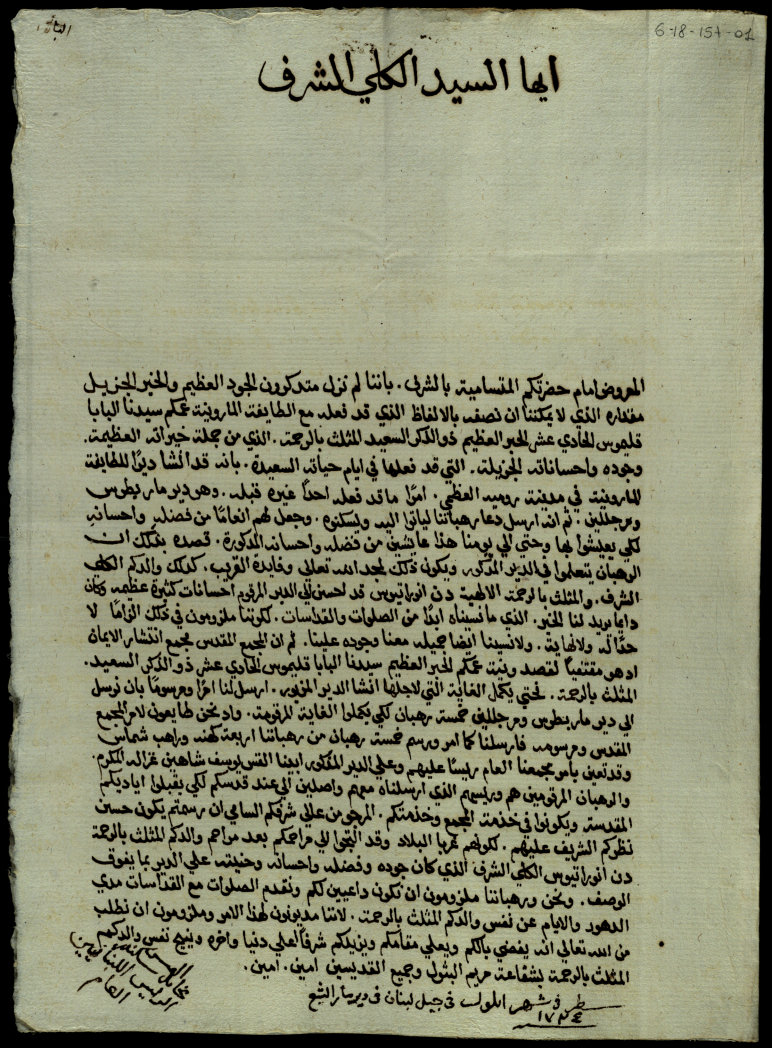 6-18-151-01
ايها السيد الكلي الشرف
المعروض امام حضرتكم المتسامية بالشرف. باننا لم نزل متذكرون الجود العظيم والخير الجزيل
مقداره الذي لا يمكننا ان نصفه بالالفاظ الذي قد فعله مع الطايفة المارونية عمكم سيدنا البابا
قليموس الحادي عشر الحبر العظيم ذو الذكر السعيد المثلث بالرحمة. الذي من جملة خيراته العظيمة.
وجوده واحساناته الجزيلة. التي قد فعلها في ايام حياته السعيدة. بانه قد انشا ديرًا للطايفة
المارونية في مدينة رومية العظمي. امرًا ما قد فعله احدًا غيره قبله. وهو دير مار بطرس
ومرجللين. ثم انه ارسل دعا رهباننا لياتوا اليه ويسكنوه. وجعل لهم انعامًا من فضله واحسانه
لكي يعيشوا بها وحتي الي يومنا هذا عايشين من فضله واحسانه المذكورة. قصده بذلك ان
الرهبان يتعلموا في الدير المذكور ويكون ذلك لمجد الله تعالي وفايدة القريب. كذلك والدكم الكلي
الشرف. والمثلث بالرحمة الالهية دن انوراتيوس قد احسن الي الدير المرقوم احسانات كثيرة عظيمة وكان
دايما يريد لنا الخير. الذي ما نسيناه ابدًا من الصلوات والقداسات. لكوننا ملزومون في ذلك الزامًا لا
حدّ له ولا نهاية. ولا نسينا ايضا جميله معنا وجوده علينا. ثم ان المجمع المقدس مجمع انتشار الايمان
اذ هو مقتفياً لقصد ونية عمكم الحبر العظيم سيدنا البابا قليموس الحادي عشر ذو الذكر السعيد.
المثلث بالرحمة. فحتي يكمل الغاية التي لاجلها انشا الدير المزبور. ارسل لنا امرًا ومرسومًا بان نرسل
الي دير مار بطرس ومرجللين خمسة رهبان لكي يكملوا الغاية المرقومة. واذ نحن طايعون لامر المجمع
المقدس ومرسومه فارسلنا كما امر ورسم خمسة رهبان من رهباننا اربعة كهنه وراهب شماس
وقد تعين بامر مجمعنا العام ريسًا عليهم وعلي الدير المذكور ابننا القس يوسف شاهين غزاله المكرم.
والرهبان المرقومين هم وريسهم الذي ارسلناه معهم واصلين الي عند قدسكم لكي يقبلوا اياديكم
المقدسة ويكونوا في خدمة المجمع وخدمتكم. المرجو من عالي شرفكم السامي ان رسمتم يكون حسن
نظركم الشريف عليهم. لكونهم غربا البلاد وقد التجوا الي مراحمكم بعد مراحم والدكم المثلث بالرحمة
دن انوراتيوس الكلي الشرف الذي كان جوده وفضله واحسانه وحنيته علي الدير بما يفوق
الوصف. ونحن ورهباننا ملزومون ان نكون داعيين لكم ونقدم الصلوات مع القداسات مدي
الدهور والايام عن نفس والدكم المثلث بالرحمة. لاننا مديونون لهذا الامر وملزومون ان نطلب
من الله تعالي انه يفضي بالكم ويعلي مقامكم ويزيدكم شرفًا اعلي دنيا واخره وينيح نفس والدكم
المثلث بالرحمة بشفاعة مريم البتول وجميع القديسين امين. امين.
سطر في شهر ايلول في جبل لبنان في دير مار اليشع
١٧٣٤
الريس اللبنانيين
العام